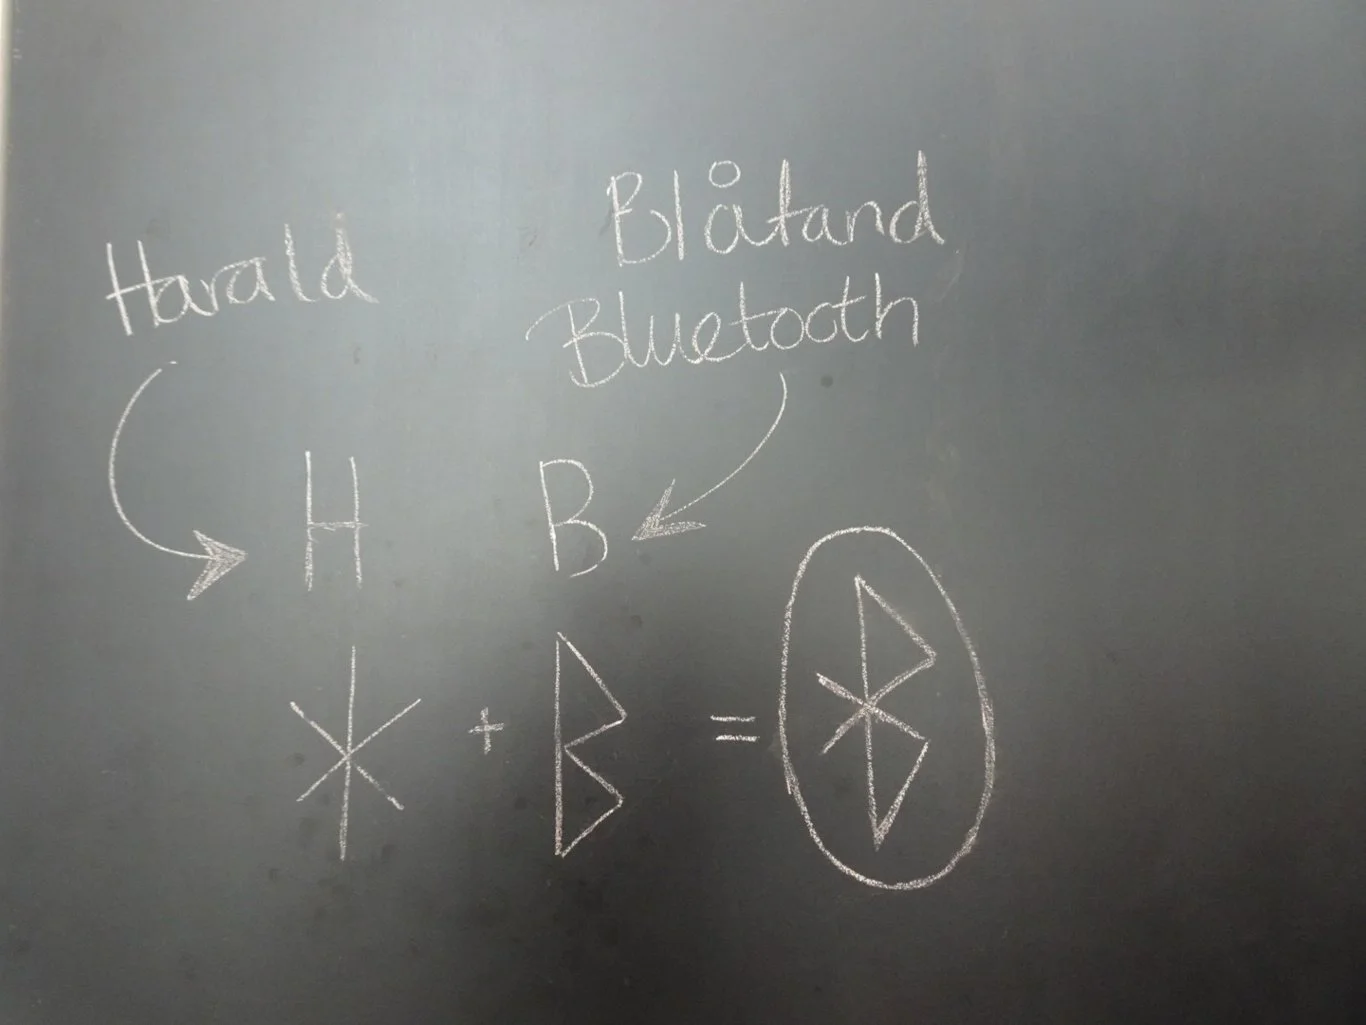 Harald
Blåtand
Bluetooth
H B
ᚼ + ᛒ =